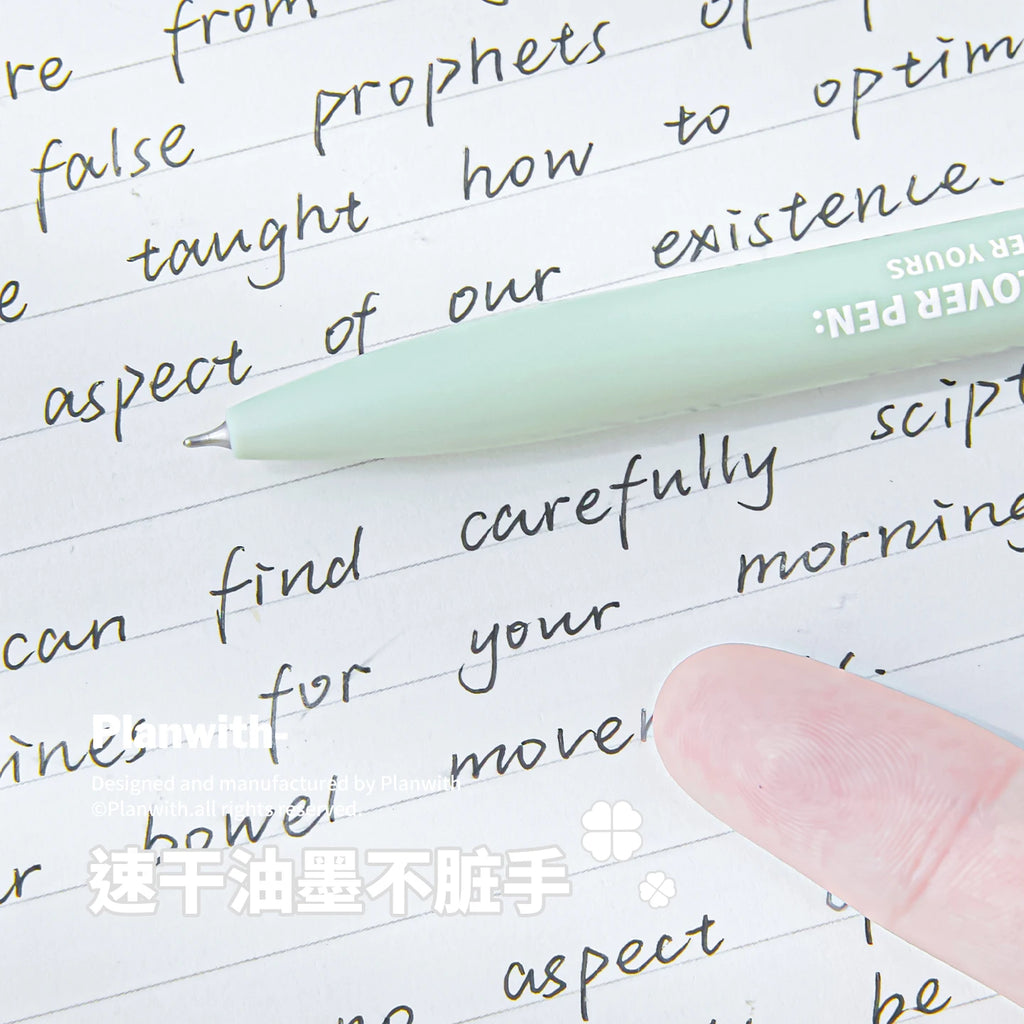 re from
false prophets of
taught how to optim
e aspect of our existence.
LOVER PEN:
ER YOURS
can find carefully scipt
ines for your morning
r bowel mover
aspect
no be
Planwith-
Designed and manufactured by Planwith
©Planwith.all rights reserved.
速干油墨不脏手